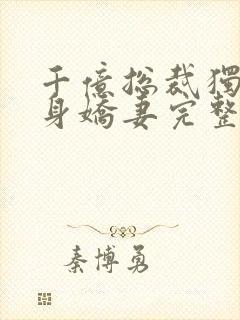 千億總裁獨
身嬌妻完整
秦博勇